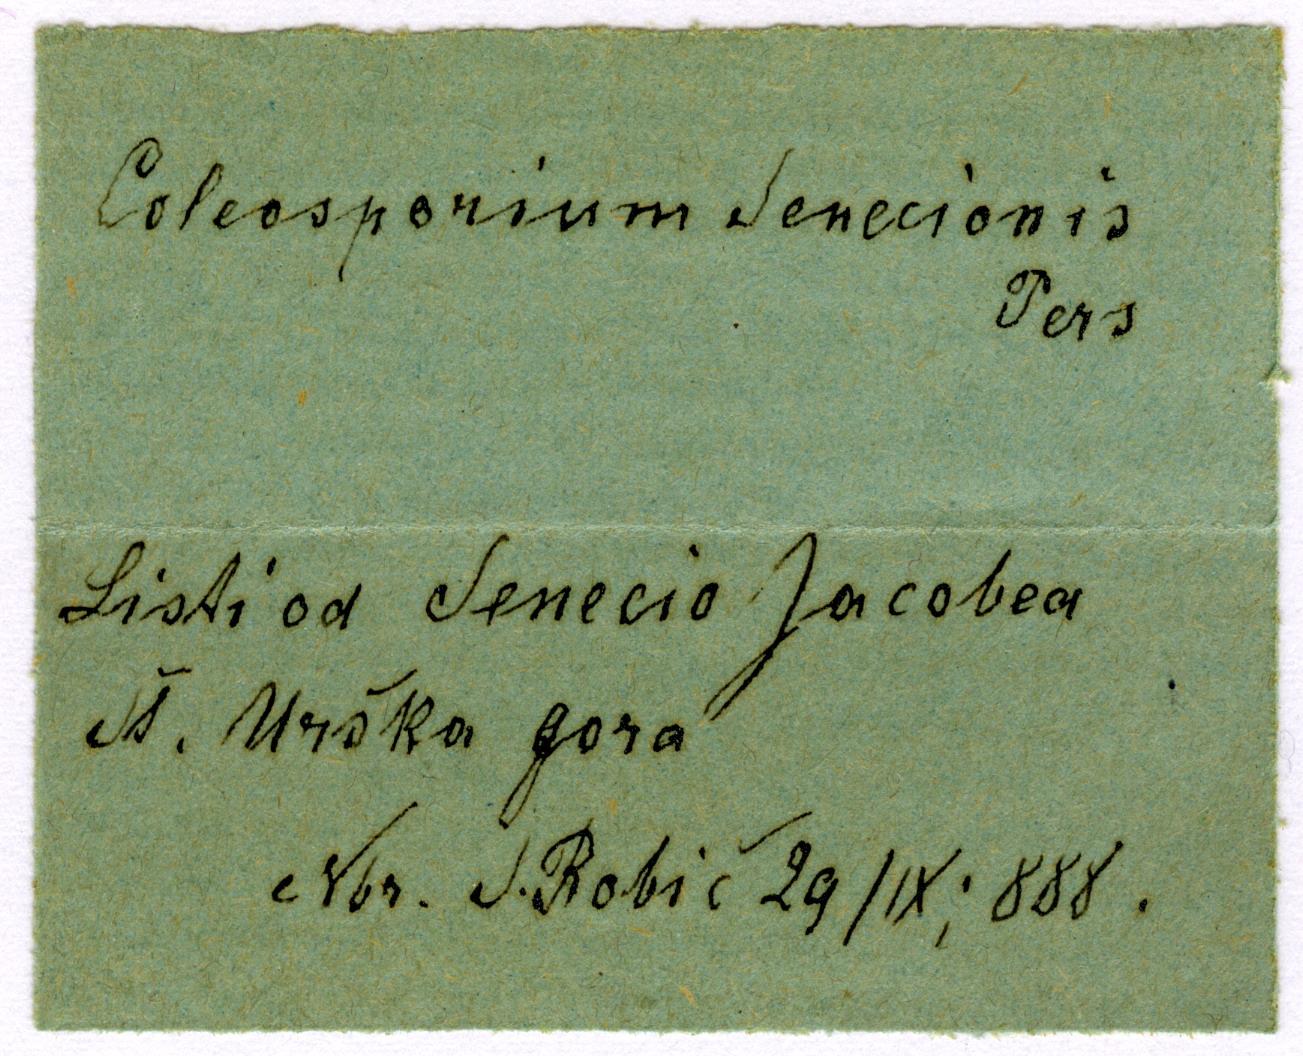 Coleosporium Senecionis
Pers
Listi od Senecio Jacobea
Št. Urška gora
Nbr. S. Robič 29/IX; 888.